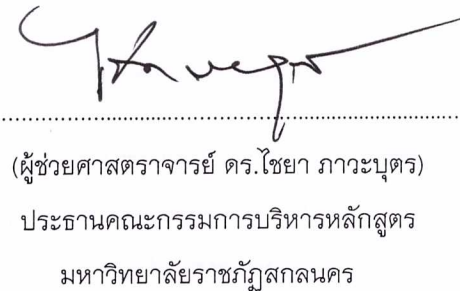 (ผู้ช่วยศาสตราจารย์ ดร.ไชยา ภาวะบุตร)
ประธานคณะกรรมการบริหารหลักสูตร
มหาวิทยาลัยราชภัฏสกลนคร